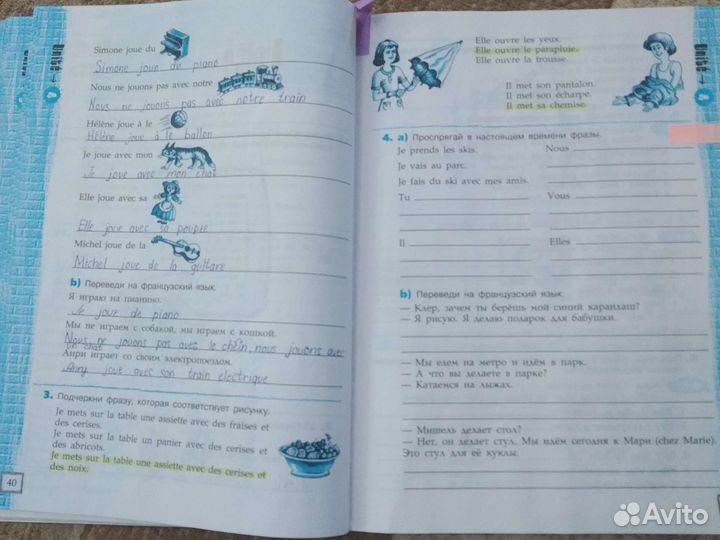 Simone joue du
Simone joue de piano
Nous ne jouons pas avec notre
Nous ne jouons pas avec notre train
Hélène joue à le
Hélène joue à le ballon
Je joue avec mon
Je joue avec mon chat
Elle joue avec sa
Elle joue avec sa poupée
Michel joue de la
Michel joue de la guitare
b) Переведи на французский язык.
Я играю на пианино.
Je joue de piano
Мы не играем с собакой, мы играем с кошкой.
Nous ne jouons pas avec le chein, nous jouons avec
un chat
Анри играет со своим электропоездом.
Anry joue avec son train electrique
3. Подчеркни фразу, которая соответствует рисунку.
Je mets sur la table une assiette avec des fraises et
des cerises.
Je mets sur la table un panier avec des cerises et
des abricots.
Je mets sur la table une assiette avec des cerises et
des noix.
40
Elle ouvre les yeux.
Elle ouvre le parapluie.
Elle ouvre la trousse.
Il met son pantalon.
Il met son écharpe.
Il met sa chemise.
4. a) Проспрягай в настоящем времени фразы.
Je prends les skis.
Je vais au parc.
Je fais du ski avec mes amis.
Tu
Il
Nous
Vous
Elles
b) Переведи на французский язык.
— Клер, зачем ты берёшь мой синий карандаш?
— Я рисую. Я делаю подарок для бабушки.
— Мы едем на метро и идём в парк.
— А что вы делаете в парке?
— Катаемся на лыжах.
— Мишель делает стол?
— Нет, он делает стул. Мы идём сегодня к Мари (chez Marie).
Это стул для её куклы.
Avito